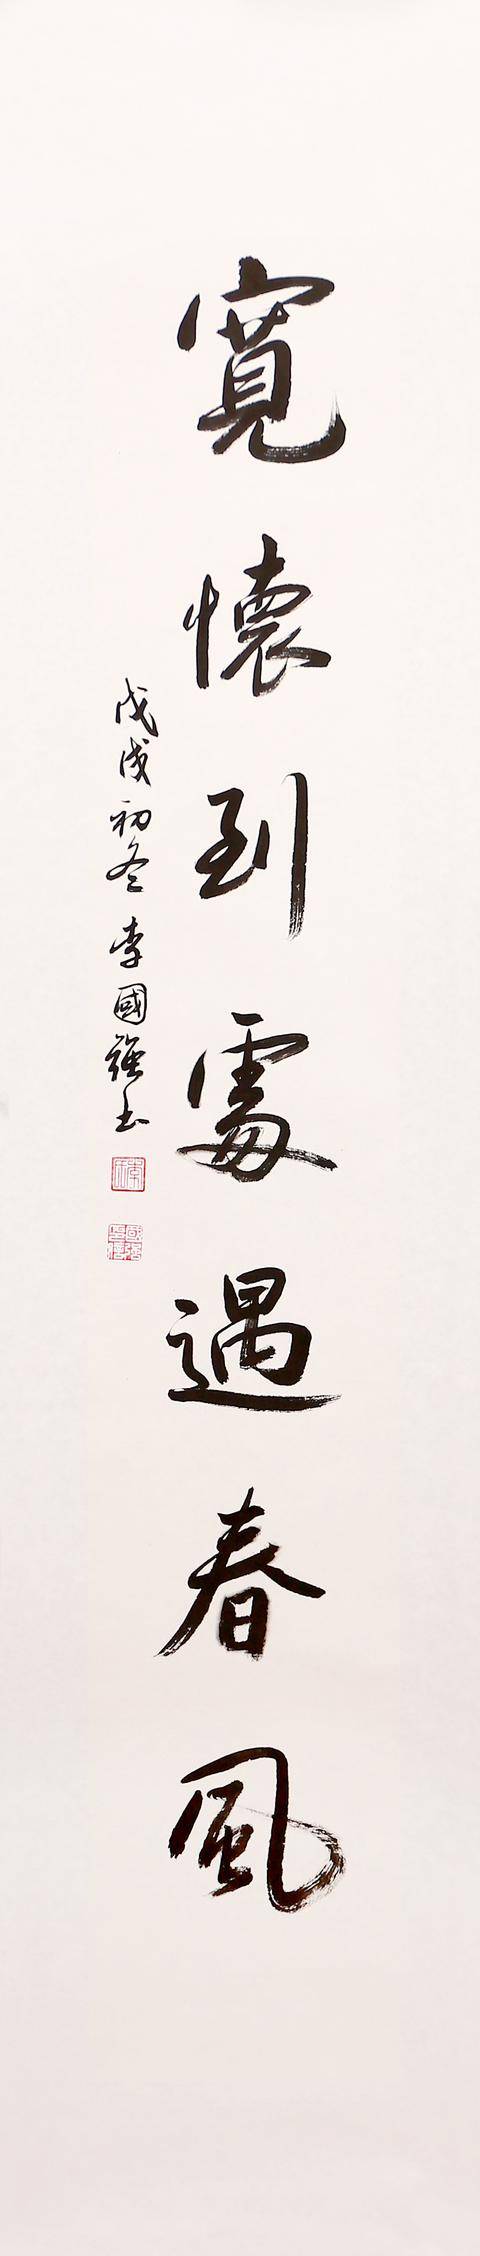 寬懷到處遇春風
戊戌初冬 李國強书